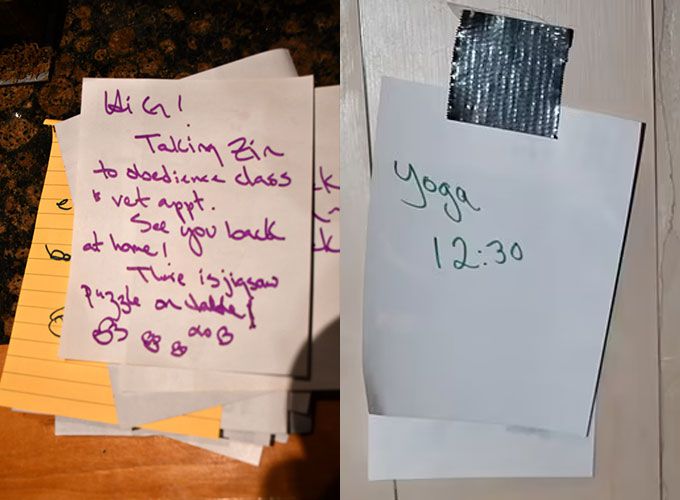 Hi G!
Taking Zin
to obedience class
& vet appt.
See you back
at home!
There is jigsaw
puzzle on table!
yoga
12:30